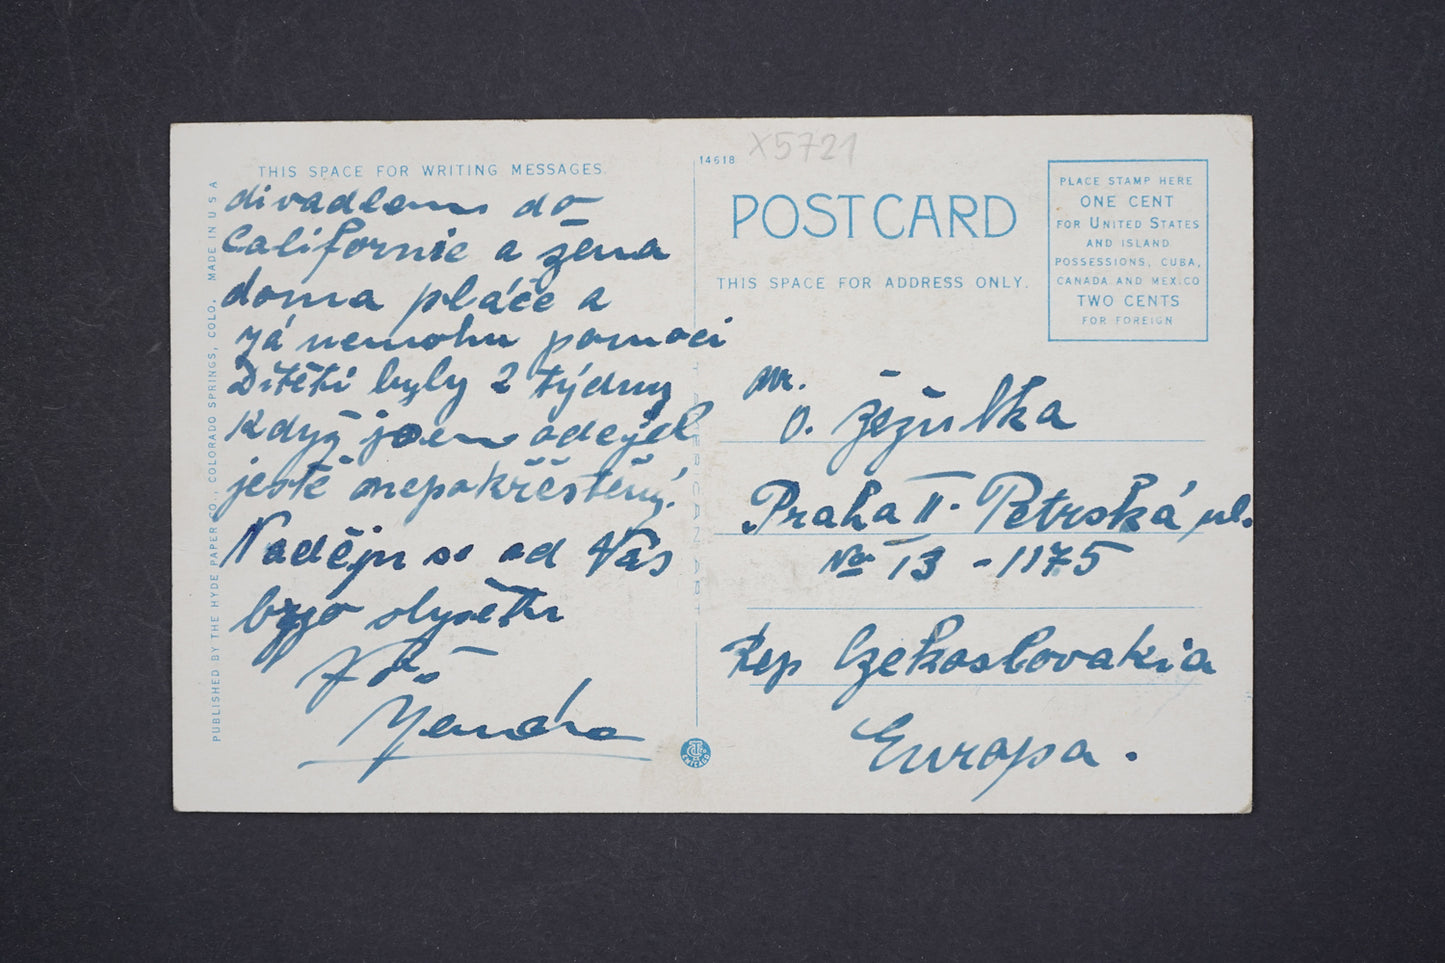 X5721
14618
THIS SPACE FOR WRITING MESSAGES.
POST CARD
THIS SPACE FOR ADDRESS ONLY.
PLACE STAMP HERE
ONE CENT
FOR UNITED STATES
AND ISLAND
POSSESSIONS, CUBA,
CANADA AND MEXICO
TWO CENTS
FOR FOREIGN
PUBLISHED BY THE HYDE PAPER CO., COLORADO SPRINGS, COLO. MADE IN U S A
divadlem do
Californie a žena
doma pláče a
já nemohu pomoci
Dítěti byly 2 týdny
Když jsem odejel
jestě nepokřěstěný.
Naděju se od Vás
brzo slyšeti
Váš
Jenda
Mr.
O. Žežulka
Praha II. Petrská ul.
No 13 - 1175
Rep Czekoslovakia
Europa.
CHICAGO